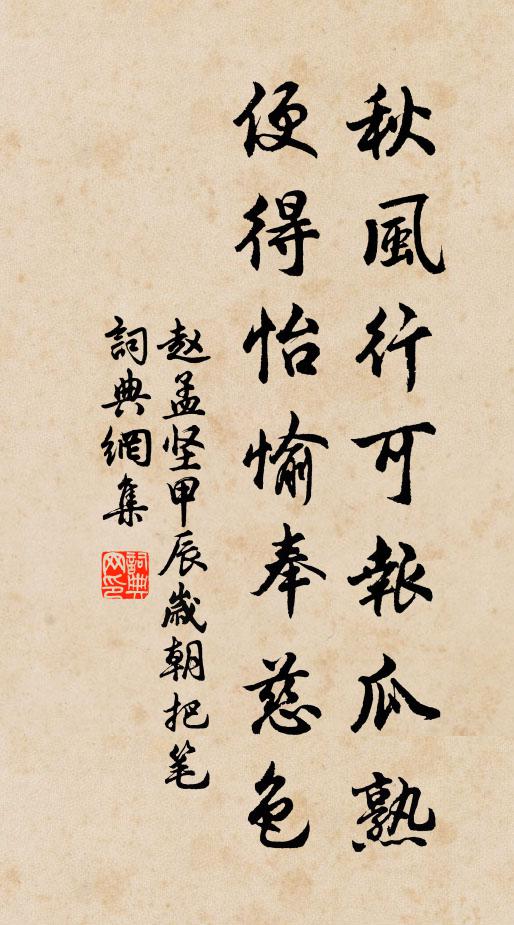 秋風行可報瓜熟
便得怡愉奉慈色
赵孟坚甲辰歲朝把笔
詞典網集
詞典网印